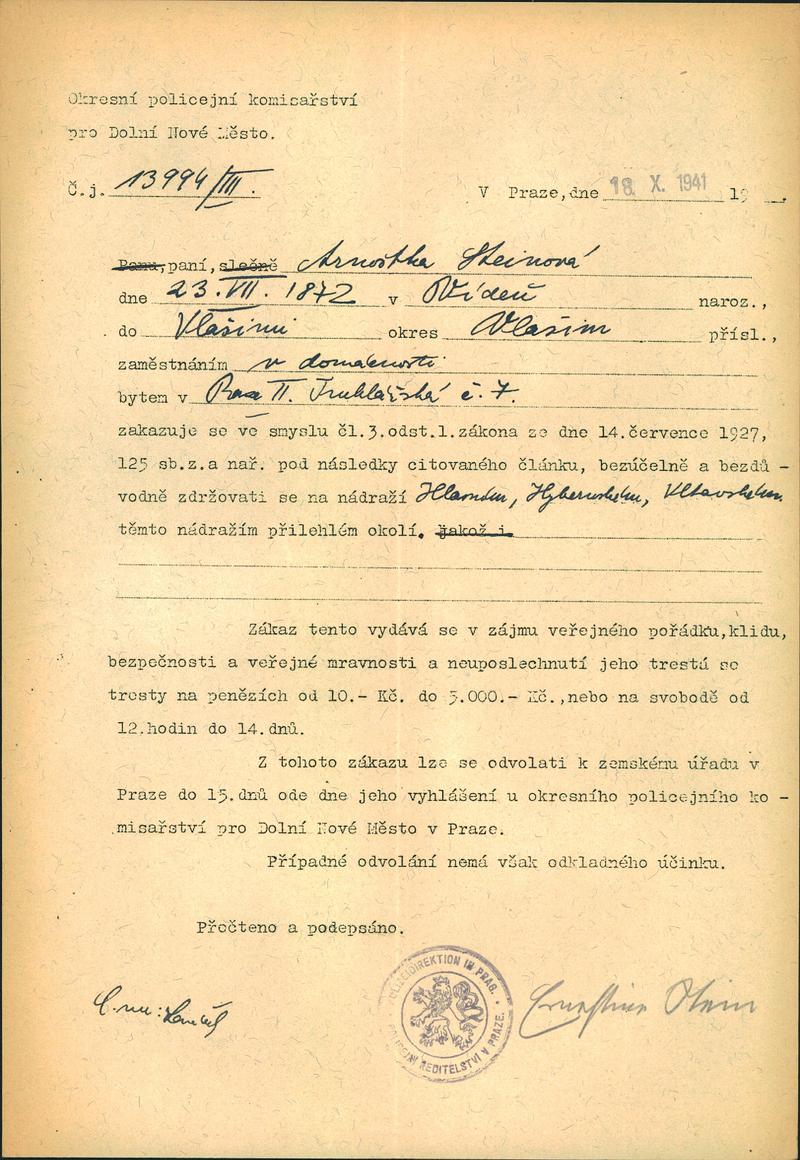 Okresní policejní komisařství
pro Dolní Nové Město.
Č.j. 13994/VIII.
V Praze, dne 18. X. 1941 19
Panu, paní, slečně Arnoštka Steinová
dne 23. VII. 1872 v Vídeň naroz.,
do Vlašimi okres Vlašim přísl.,
zaměstnáním v domácnosti
bytem v Praze II. Truhlářská č. 7.
zakazuje se ve smyslu čl.3.odst.1.zákona ze dne 14.července 1927,
125 sb.z.a nař. pod následky citovaného článku, bezúčelně a bezdů -
vodně zdržovati se na nádraží Hlavním, Hybernském, Vltavském.
těmto nádražím přilehlém okolí. jakož i
Zákaz tento vydává se v zájmu veřejného pořádku, klidu,
bezpečnosti a veřejné mravnosti a neuposlechnutí jeho trestá se
tresty na penězích od 10.- Kč. do 5.000.- Kč., nebo na svobodě od
12.hodin do 14.dnů.
Z tohoto zákazu lze se odvolati k zemskému úřadu v
Praze do 15.dnů ode dne jeho vyhlášení u okresního policejního ko -
misařství pro Dolní Nové Město v Praze.
Případné odvolání nemá však odkladného účinku.
Přečteno a podepsáno.
POLIZEIDIREKTION IN PRAG.
POLICEJNÍ ŘEDITELSTVÍ V PRAZE.
Ernestine Stein